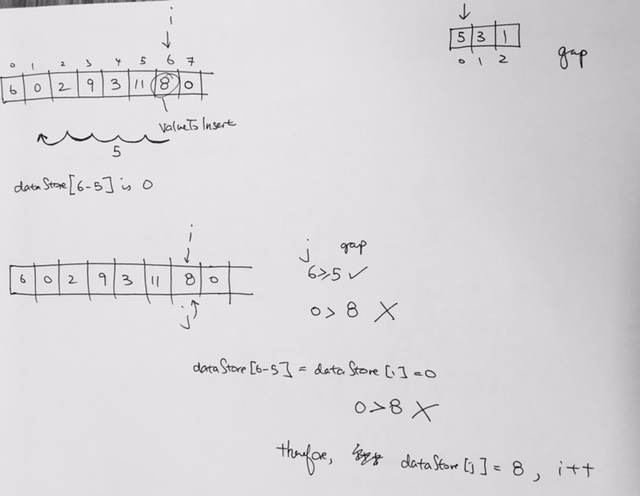 i
0 1 2 3 4 5 6 7
6 0 2 9 3 11 8 0
valueToInsert
5
dataStore[6-5] is 0
5 3 1
0 1 2
gap
i
6 0 2 9 3 11 8 0
j
j gap
6≥5 ✓
0 > 8 X
dataStore[6-5] = dataStore[1] = 0
0>8 X
therefore, dataStore[j] = 8, i++